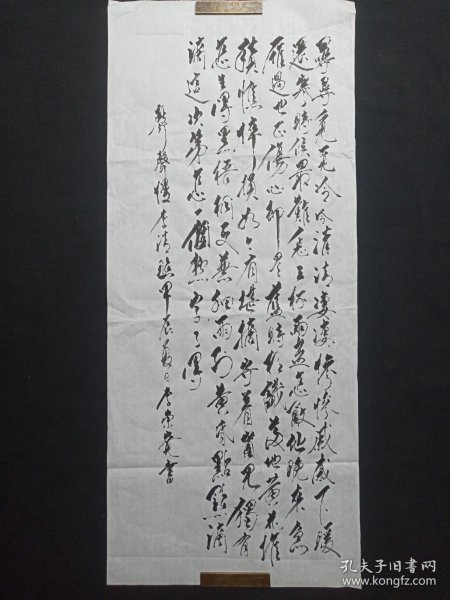 尋尋覓覓冷冷清清淒淒慘慘戚戚乍暖
還寒時候最難息三杯兩盞怎敵他晚來急
雁過也正傷心卻是舊時相識滿地黃花堆
積憔悴損如今有堪摘守着窗兒獨自
怎生得黑梧桐更兼細雨到黃昏點點滴
滴這次第怎一個愁字了得
聲聲慢李清照甲辰夏日李崇書
孔夫子旧书网
www.kongfz.com